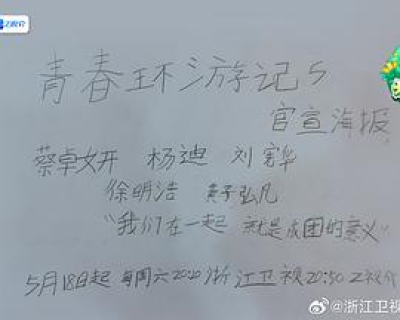 Z视介
青春环游记5
官宣海报
蔡卓妍 杨迪 刘宪华
徐明浩 黄子弘凡
“我们在一起 就是成团的意义”
5月18日起 每周六20:20浙江卫视20:50Z视介
@浙江卫视